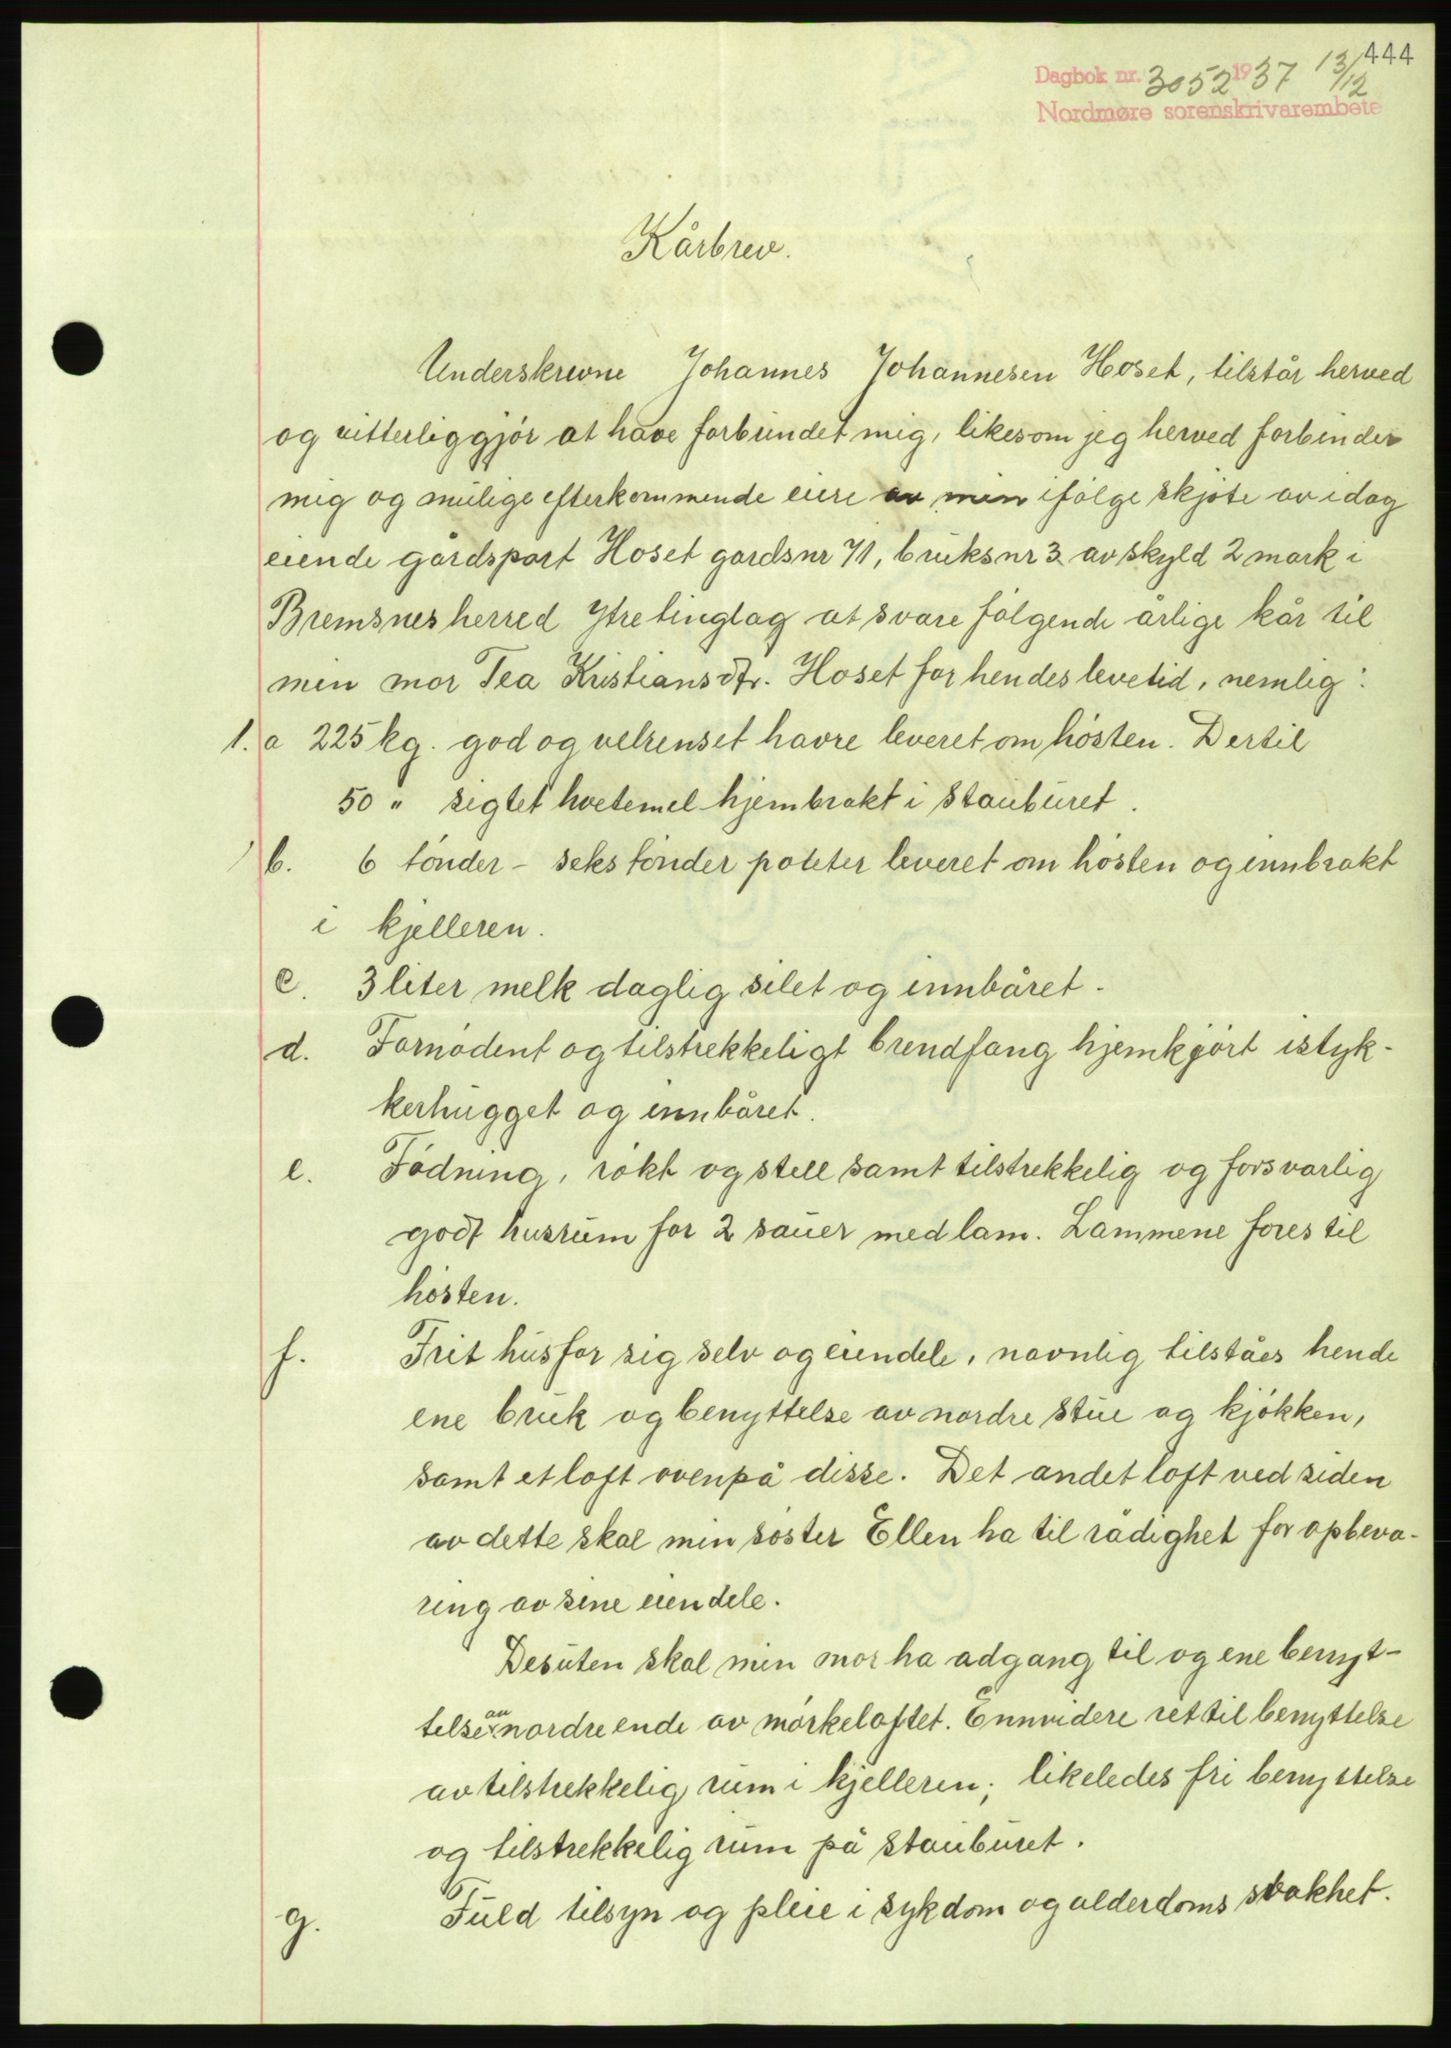 444
Dagbok nr. 3052 1937 13/12
Nordmøre sorenskrivarembete
Kårbrev.
Underskrevne Johannes Johannesen Hoset, tilstår herved
og vitterliggjør at have forbundet mig, likesom jeg herved forbinder
mig og mulige efterkommende eiere av min ifølge skjøte av idag
eiende gårdspart Hoset gardsnr 71, bruksnr 3 av skyld 2 mark i
Bremsnes herred Ytre tinglag at svare følgende årlige kår til
min mor Tea Kristiansdtr. Hoset for hendes levetid, nemlig:
1. a 225 kg. god og velrenset havre leveret om høsten. Dertil
50 " sigtet hvetemel hjembrakt i stauburet.
b. 6 tønder - seks tønder poteter leveret om høsten og innbrakt
i kjelleren.
c. 3 liter melk daglig silet og innbåret.
d. Fornødent og tilstrekkeligt brendfang hjemkjørt istyk-
kerhugget og innbåret.
e. Fødning, røkt og stell samt tilstrekkelig og forsvarlig
godt husrum for 2 sauer med lam. Lammene fores til
høsten.
f. Frit hus for sig selv og eiendele, navnlig tilståes hende
ene bruk og benyttelse av nordre stue og kjøkken,
samt et loft ovenpå disse. Det andet loft ved siden
av dette skal min søster Ellen ha til rådighet for opbeva-
ring av sine eiendele.
Desuten skal min mor ha adgang til og ene benyt-
telse av nordre ende av mørkeloftet. Ennvidere ret til benyttelse
av tilstrekkelig rum i kjelleren; likeledes fri benyttelse
og tilstrekkelig rum på stauburet.
g. Fuld tilsyn og pleie i sykdom og alderdoms svakhet.